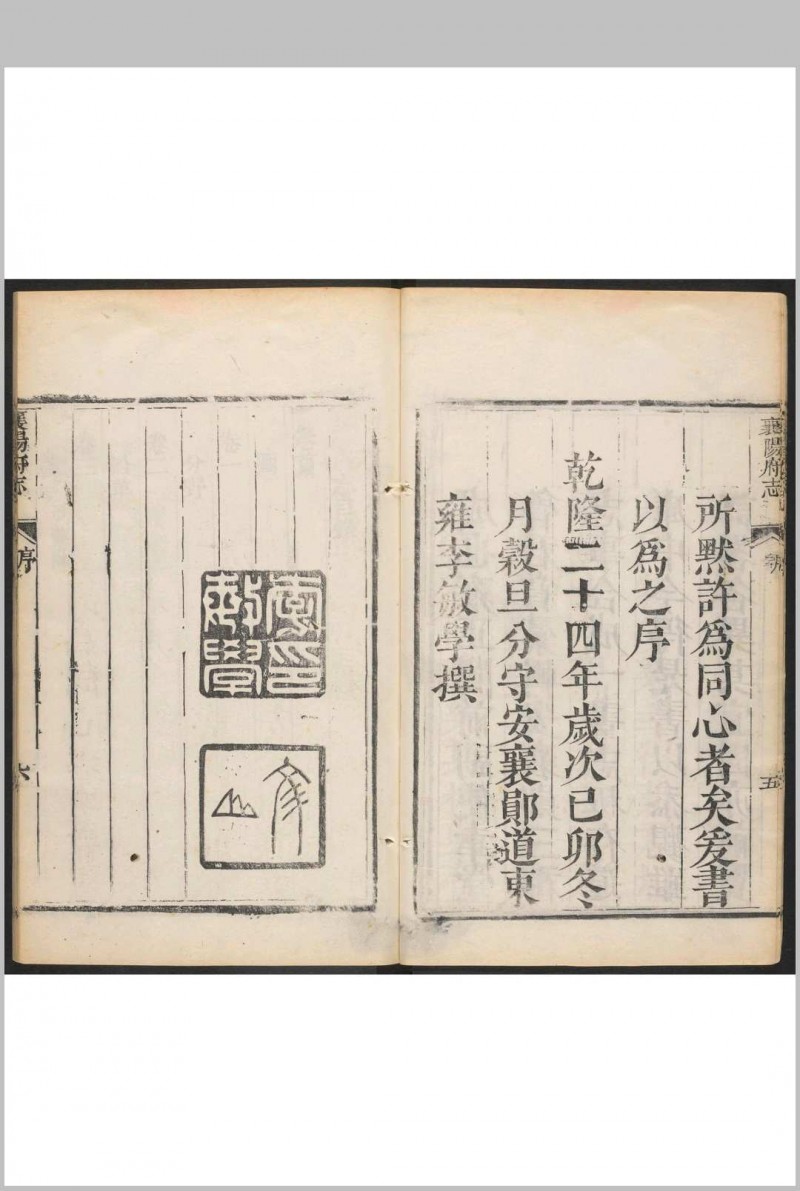 襄陽府志
五
所默許爲同心者矣爰書
以爲之序
乾隆二十四年歲次己卯冬
月穀旦分守安襄鄖道東
雍李敏學撰
李印
敏學
襄陽府志
序
六